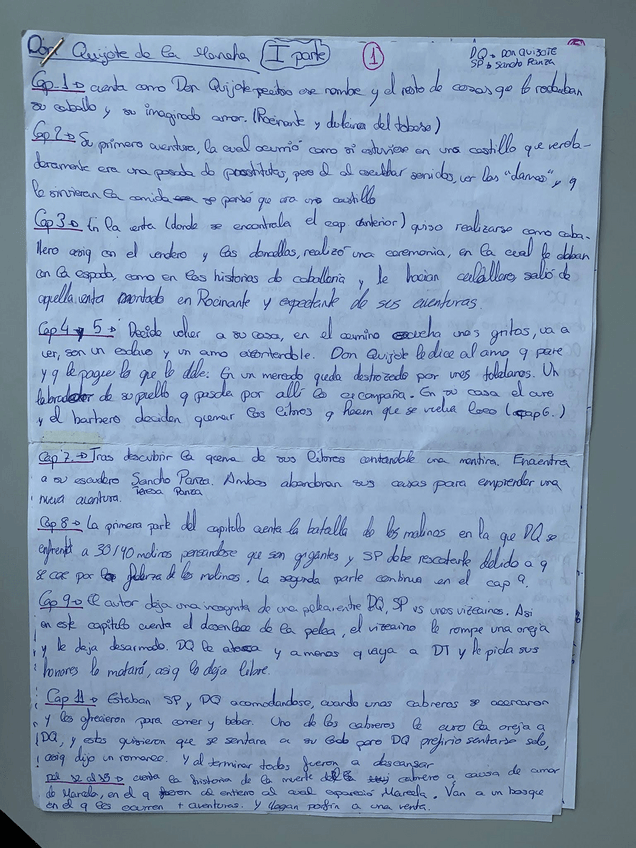 Don Quijote de la Mancha I parte 1 DQ → DON QUIJOTE
SP → Sancho Panza
Cap. 1 → cuenta como Don Quijote ese nombre y el resto de cosas que le rodeaban
su caballo y su imaginado amor. (Rocinante y dulcinea del toboso)
Cap 2 → Su primera aventura, la cual ocurrió como si estuviese en un castillo que verda-
deramente era una posada de prostitutas, pero él al escuchar sonidos, ver las "damas" y q
le sirvieran la comida se pensó que era un castillo
Cap 3 → En la venta (donde se encontraba el cap anterior) quiso realizarse como caba-
llero asiq con el ventero y las doncellas, realizó una ceremonia, en la cual le daban
con la espada, como en las historias de caballeria y le hacian caballero, salió de
aquella venta montado en Rocinante y expectante de sus aventuras.
Cap 4 y 5 → Decide volver a su casa, en el camino escucha unos gritos, va a
ver, son un esclavo y un amo Don Quijote le dice al amo q pare
y q le pague lo que le debe. En un mercado queda destrozado por unos toledanos. Un
labrador de su pueblo q pasaba por allí lo acompaña. En su casa el cura
y el barbero deciden quemar los libros q hacen que se vuelva loco (cap 6.)
Cap 7. → Tras descubrir la quema de sus libros contandole una mentira. Encuentra
a su escudero Sancho Panza. Ambos abandonan sus casas para emprender una
nueva aventura. Teresa Panza
Cap 8 → La primera parte del capitulo cuenta la batalla de los molinos en la que DQ se
enfrenta a 30/40 molinos pensandose que son gigantes y SP debe rescatarle debido a q
se cae por la fuerza de los molinos. La segunda parte continua en el cap 9.
Cap 9 → El autor deja una incognita de una pelea entre DQ, SP vs unos vizcainos. Asi
en este capitulo cuenta el desenlace de la pelea, el vizcaino le rompe una oreja
y le deja desarmado. DQ le y a menos q vaya a DT y le pida sus
honores le matará, asiq lo deja libre.
Cap 11 → Estaban SP y DQ acomodandose, cuando unos cabreros se acercaron
y les ofrecieron para comer y beber. Uno de los cabreros le curo la oreja a
DQ, y estos quisieron que se sentara a su lado pero DQ prefirio sentarse solo,
asiq dijo un romance. Y al terminar todos fueron a descansar
Del 12 al 15 → cuenta la historia de la muerte del cabrero a causa de amor
de Marcela, en el q fueron al entierro al cual apareció Marcela. Van a un bosque
en el q les ocurren + aventuras. Y llegan porfin a una venta.